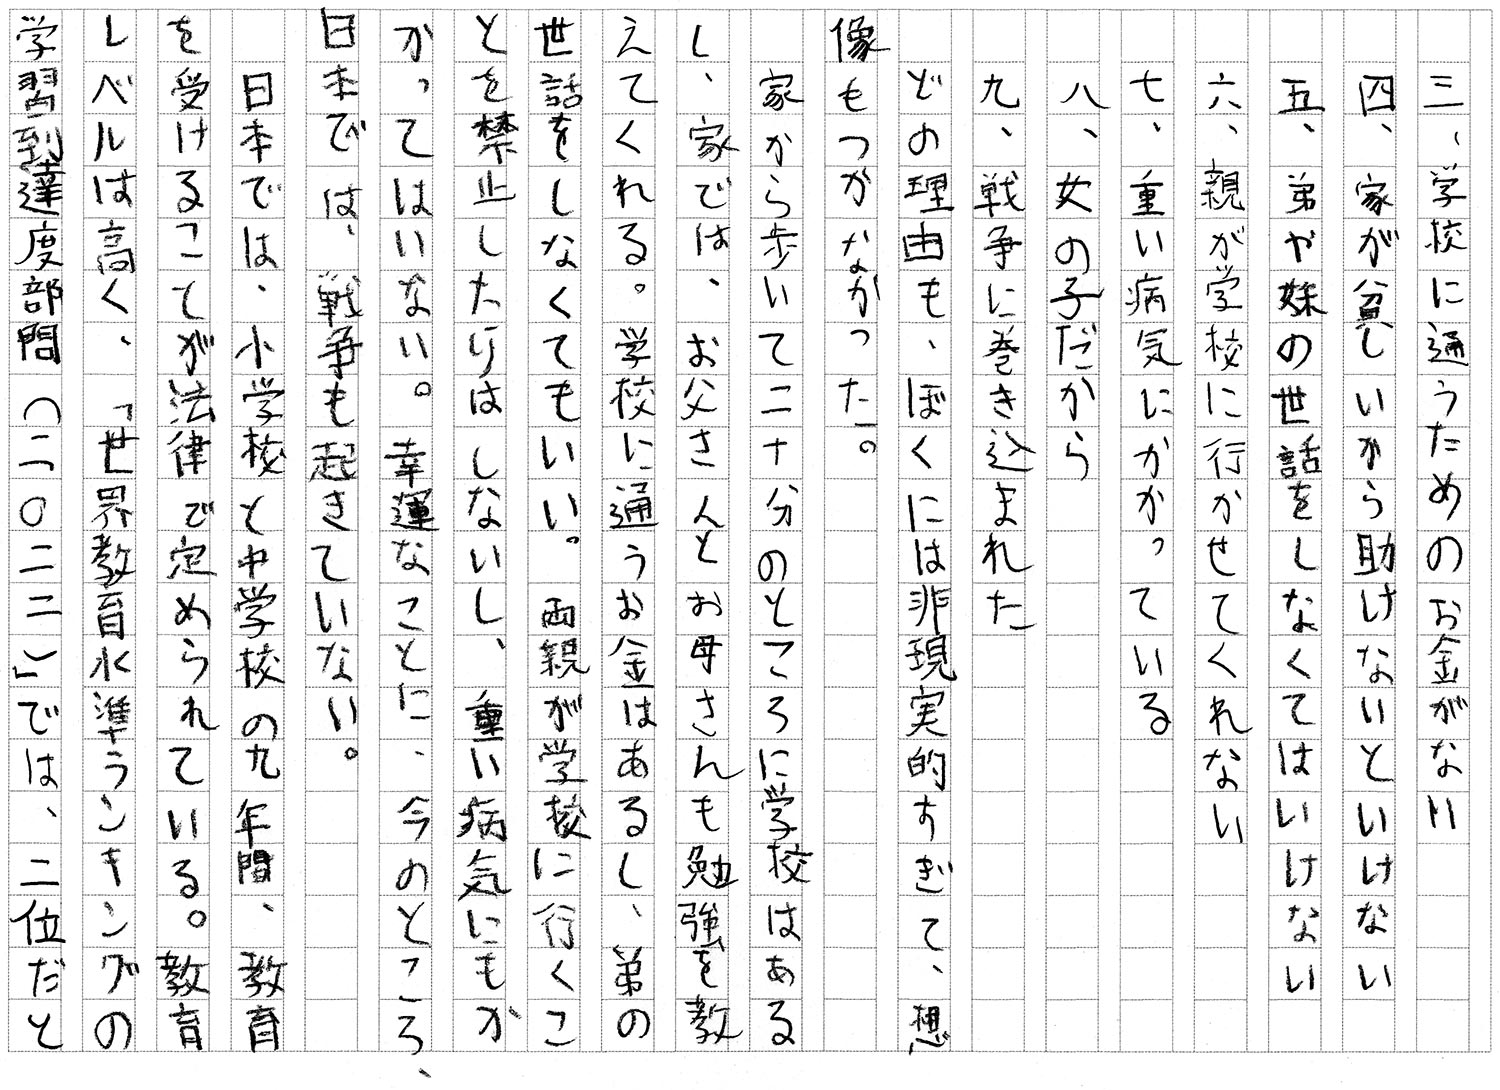 三、学校に通うためのお金がない
四、家が貧しいから助けないといけない
五、弟や妹の世話をしなくてはいけない
六、親が学校に行かせてくれない
七、重い病気にかかっている
八、女の子だから
九、戦争に巻き込まれた
どの理由も、ぼくには非現実的すぎて、想
像もつかなかった。
家から歩いて二十分のところに学校はある
し、家では、お父さんとお母さんも勉強を教
えてくれる。学校に通うお金はあるし、弟の
世話をしなくてもいい。両親が学校に行くこ
とを禁止したりはしないし、重い病気にもか
かってはいない。幸運なことに、今のところ、
日本では、戦争も起きていない。
日本では、小学校と中学校の九年間、教育
を受けることが法律で定められている。教育
レベルは高く、「世界教育水準ランキングの
学習到達度部門(二〇二二)」では、二位だと